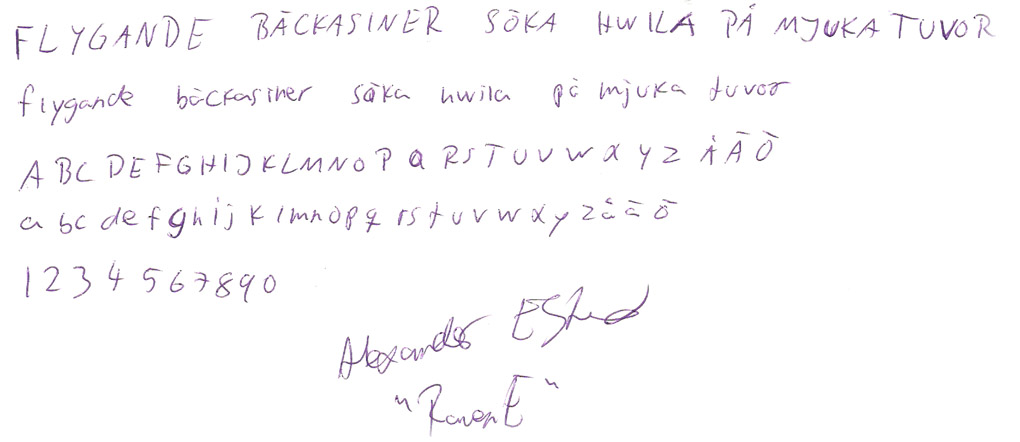 FLYGANDE BÄCKASINER SÖKA HWILA PÅ MJUKA TUVOR
flygande bäckasiner söka hwila på mjuka tuvor
A B C D E F G H I J K L M N O P Q R S T U V W X Y Z Å Ä Ö
a b c d e f g h i j k l m n o p q r s t u v w x y z å ä ö
1 2 3 4 5 6 7 8 9 0
Alexander
"RavenE"